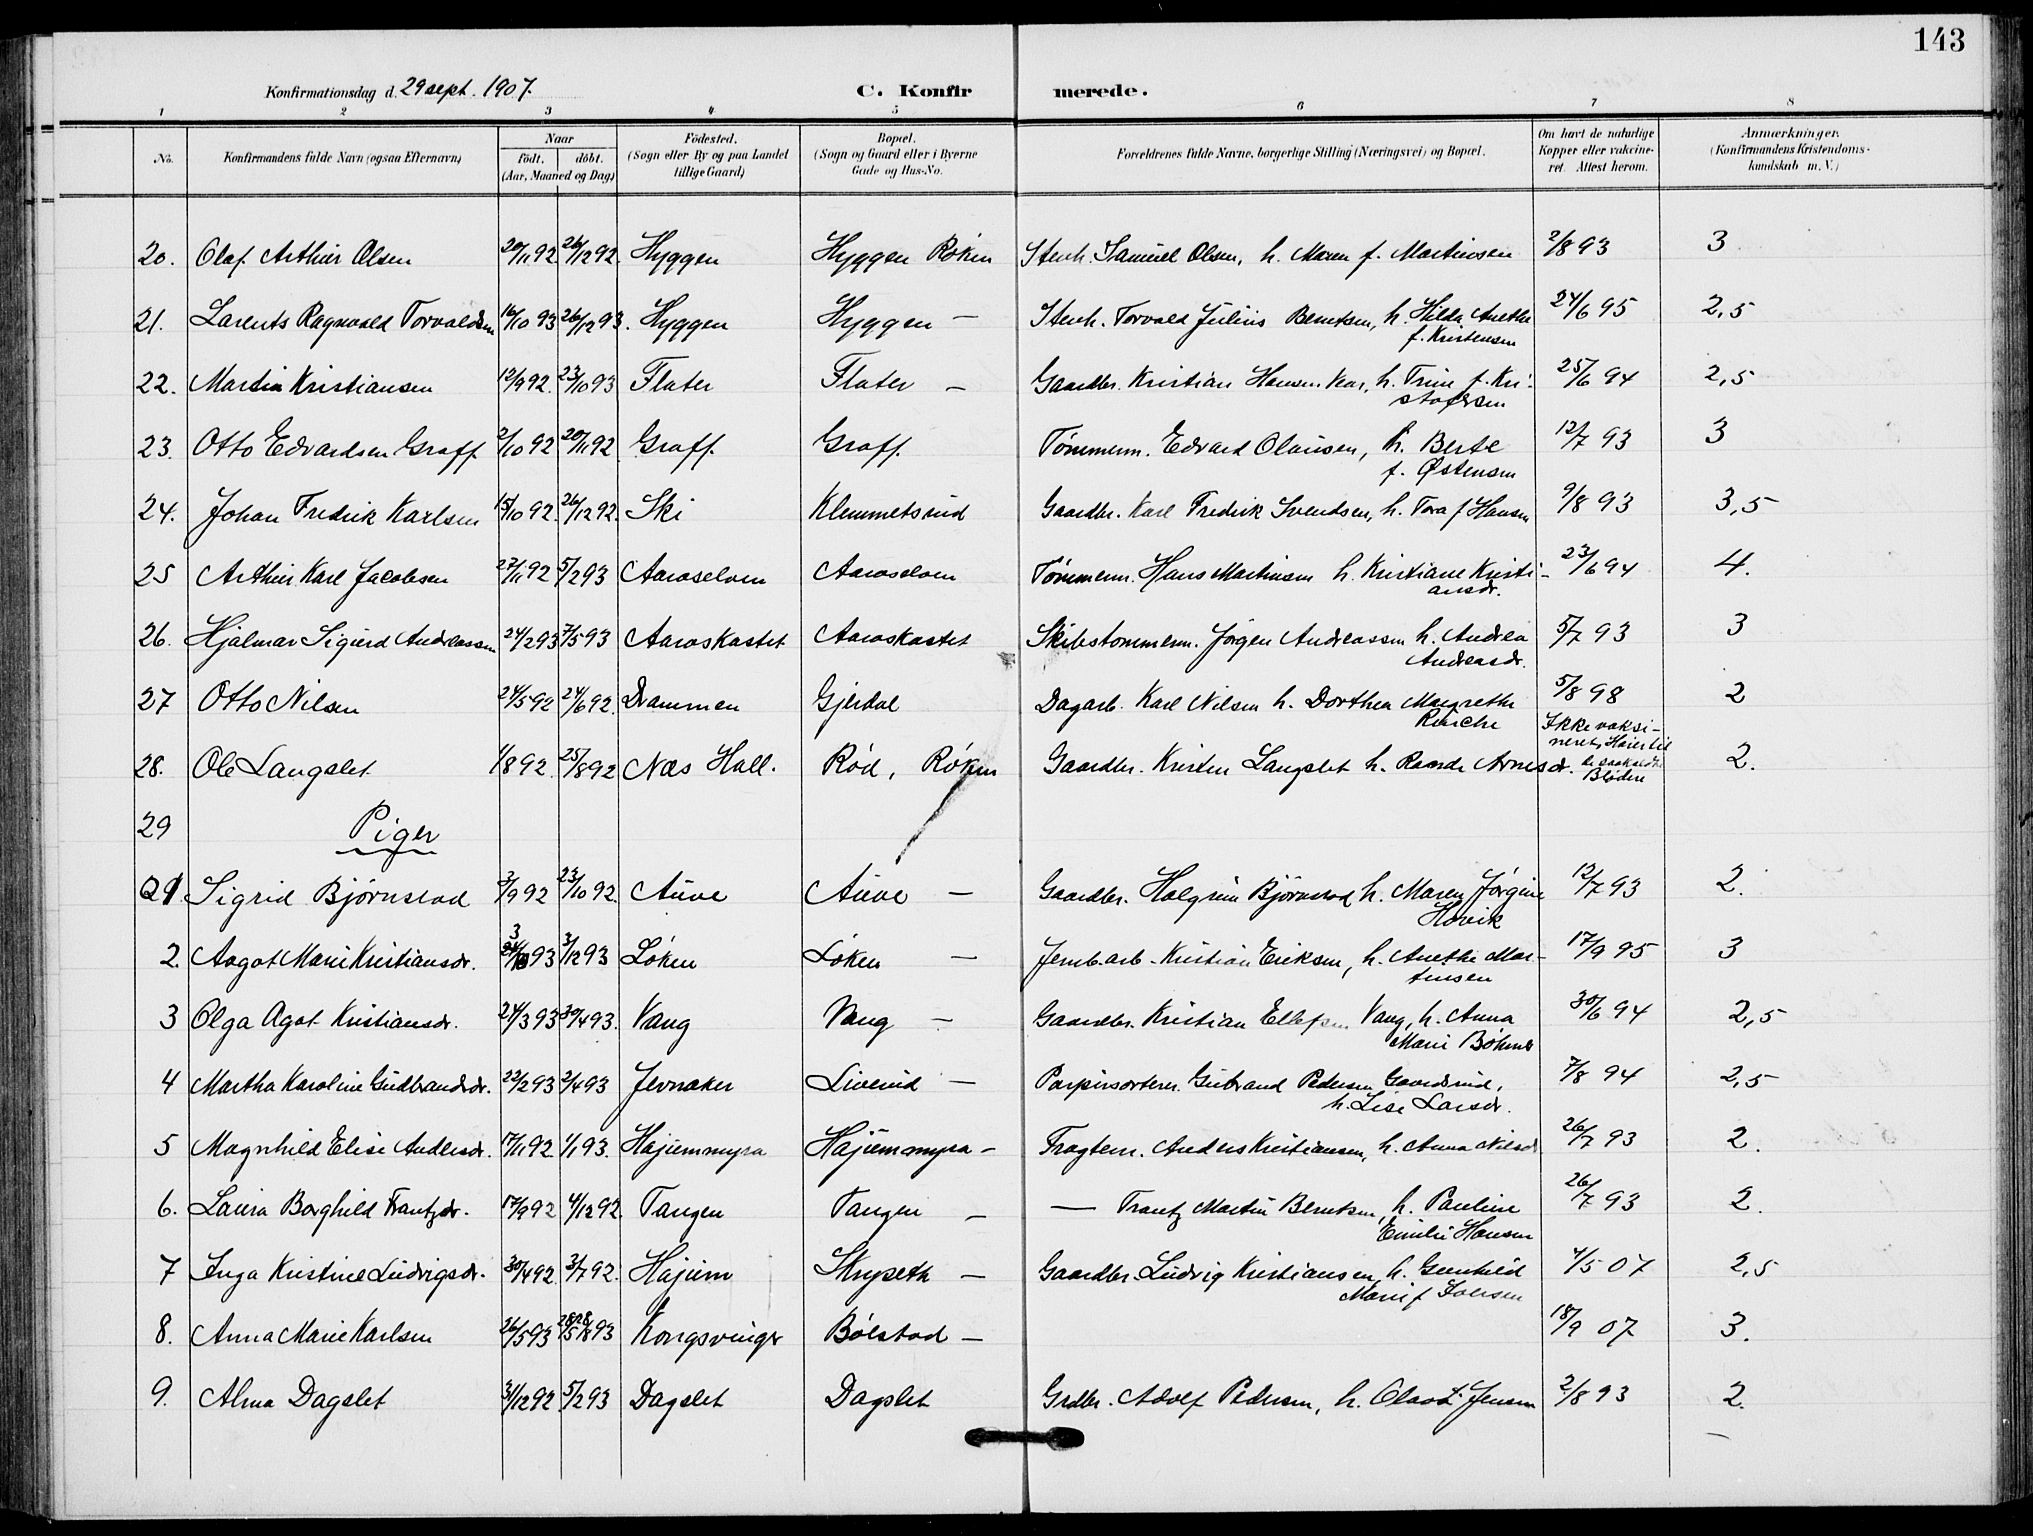 143
Konfirmationsdag d. 29 sept. 1907. C. Konfir merede.
1 2 3 4 5 6 7 8
No. Konfirmandens fulde Navn (ogsaa Efternavn) Naar født. døbt. (Aar, Maaned og Dag) Fødested. (Sogn eller By og paa Landet tillige Gaard) Bopæl. (Sogn og Gaard eller i Byerne Gade og Hus-No. Forældrenes fulde Navne, borgerlige Stilling (Næringsvei) og Bopæl. Om havt de naturlige Kopper eller vakcineret. Attest herom. Anmærkninger. (Konfirmandens Kristendomskundskab m. V.)
20. Olaf Arthur Olsen 20/11 92 26/12 92. Hyggen Hyggen Røken Stenh. Samuel Olsen, h. Maren f. Martinsen 2/8 93 3
21. Larents Ragnvald Torvaldsen 16/10 93 26/12 93. Hyggen Hyggen — Stenh. Torvald Julius Berntsen, h. Hilda Anethe 24/6 95 2,5
f. Kristensen
22. Martin Kristiansen 12/9 92. 23/10 93 Flater Flater — Gaardbr. Kristian Hansen, h. Trine f. Kri- 25/6 94 2,5
stofersen
23. Otto Edvardsen Graff. 2/10 92 20/11 92 Graff. Graff. Tømmerm. Edvard Olausen, h. Berte 12/7 93 3
f. Østensen
24. Johan Fredrik Karlsen 15/10 92. 26/12 92. Ski Klemmetsrud Gaardbr. Karl Fredrik Svendsen, h. Tora f Hansen 9/8 93 3,5
25 Arthur Karl Jacobsen 27/11 92 5/2 93 Aaroselven Aaroselven Tømmerm. Hans Martinsen h. Kristiane Kristi- 23/6 94 4.
ansdr.
26. Hjalmar Sigurd Andreassen 24/2 93 7/5 93 Aaroskastet Aaroskastet Skibstømmerm. Jørgen Andreassen h. Andrea 5/7 93 3
Andreasdr.
27 Otto Nilsen 24/5 92 24/6 92. Drammen Gjerdal Dagarb. Karl Nilsen h. Dorthea Margrethe 5/8 98 2
Ikke vaksi-
neret,
28. Ole Langslet 1/8 92. 25/8 92 Næs Hall. Rød, Røken Gaardbr. Kristen Langslet h. Rande Arnesdr. 2.
29
Piger
1 Sigrid Bjørnstad 3/9 92 23/10 92. Auve Auve — Gaardbr. Halgrim Bjørnstad h. Maren Jørgine 12/7 93 2.
Hovik
2. Aagot Marie Kristiansdr. 93 3/12 93 Løken Løken — Jernb.arb. Kristian Eriksen, h. Anethe Mar- 17/9 95 3
tinsen
3 Olga Agot Kristiansdr. 24/3 93 30/4 93. Vang Vang — Gaardbr. Kristian Ellefsen Vang, h. Anna 30/6 94 2,5
Marie Bøhmer
4 Martha Karoline Gudbrandsdr. 22/2 93 2/4 93 Jevnaker Liverud — Papirsorterer. Gubrand Pedersen Gaardsrud, 7/8 94 2,5
h. Lise Larsdr.
5 Magnhild Elise Andersdr. 17/11 92 1/1 93. Hajummyra Hajummyra — Fragtem. Anders Kristiansen, h. Anna Nilsdr 26/7 93 2.
6. Laura Borghild Frantzdr. 17/9 92 4/12 92. Tangen Tangen — — Frantz Martin Berntsen, h. Pauline 26/7 93 2.
Emilie Hansen
7 Inga Kristine Ludvigsdr. 30/4 92. 3/7 92. Hajum Skryseth — Gaardbr. Ludvig Kristiansen, h. Gunhild 4/5 07 2,5
Marie f Iversen
8. Anna Marie Karlsen 26/5 93 93 Kongsvinger Bølstad — 18/9 07 3.
9. Alma Dagslet 31/12 92 5/2 93 Dagslet Dagslet Grdbr. Adolf Pedersen, h. Olava Jensen 2/8 93 2.